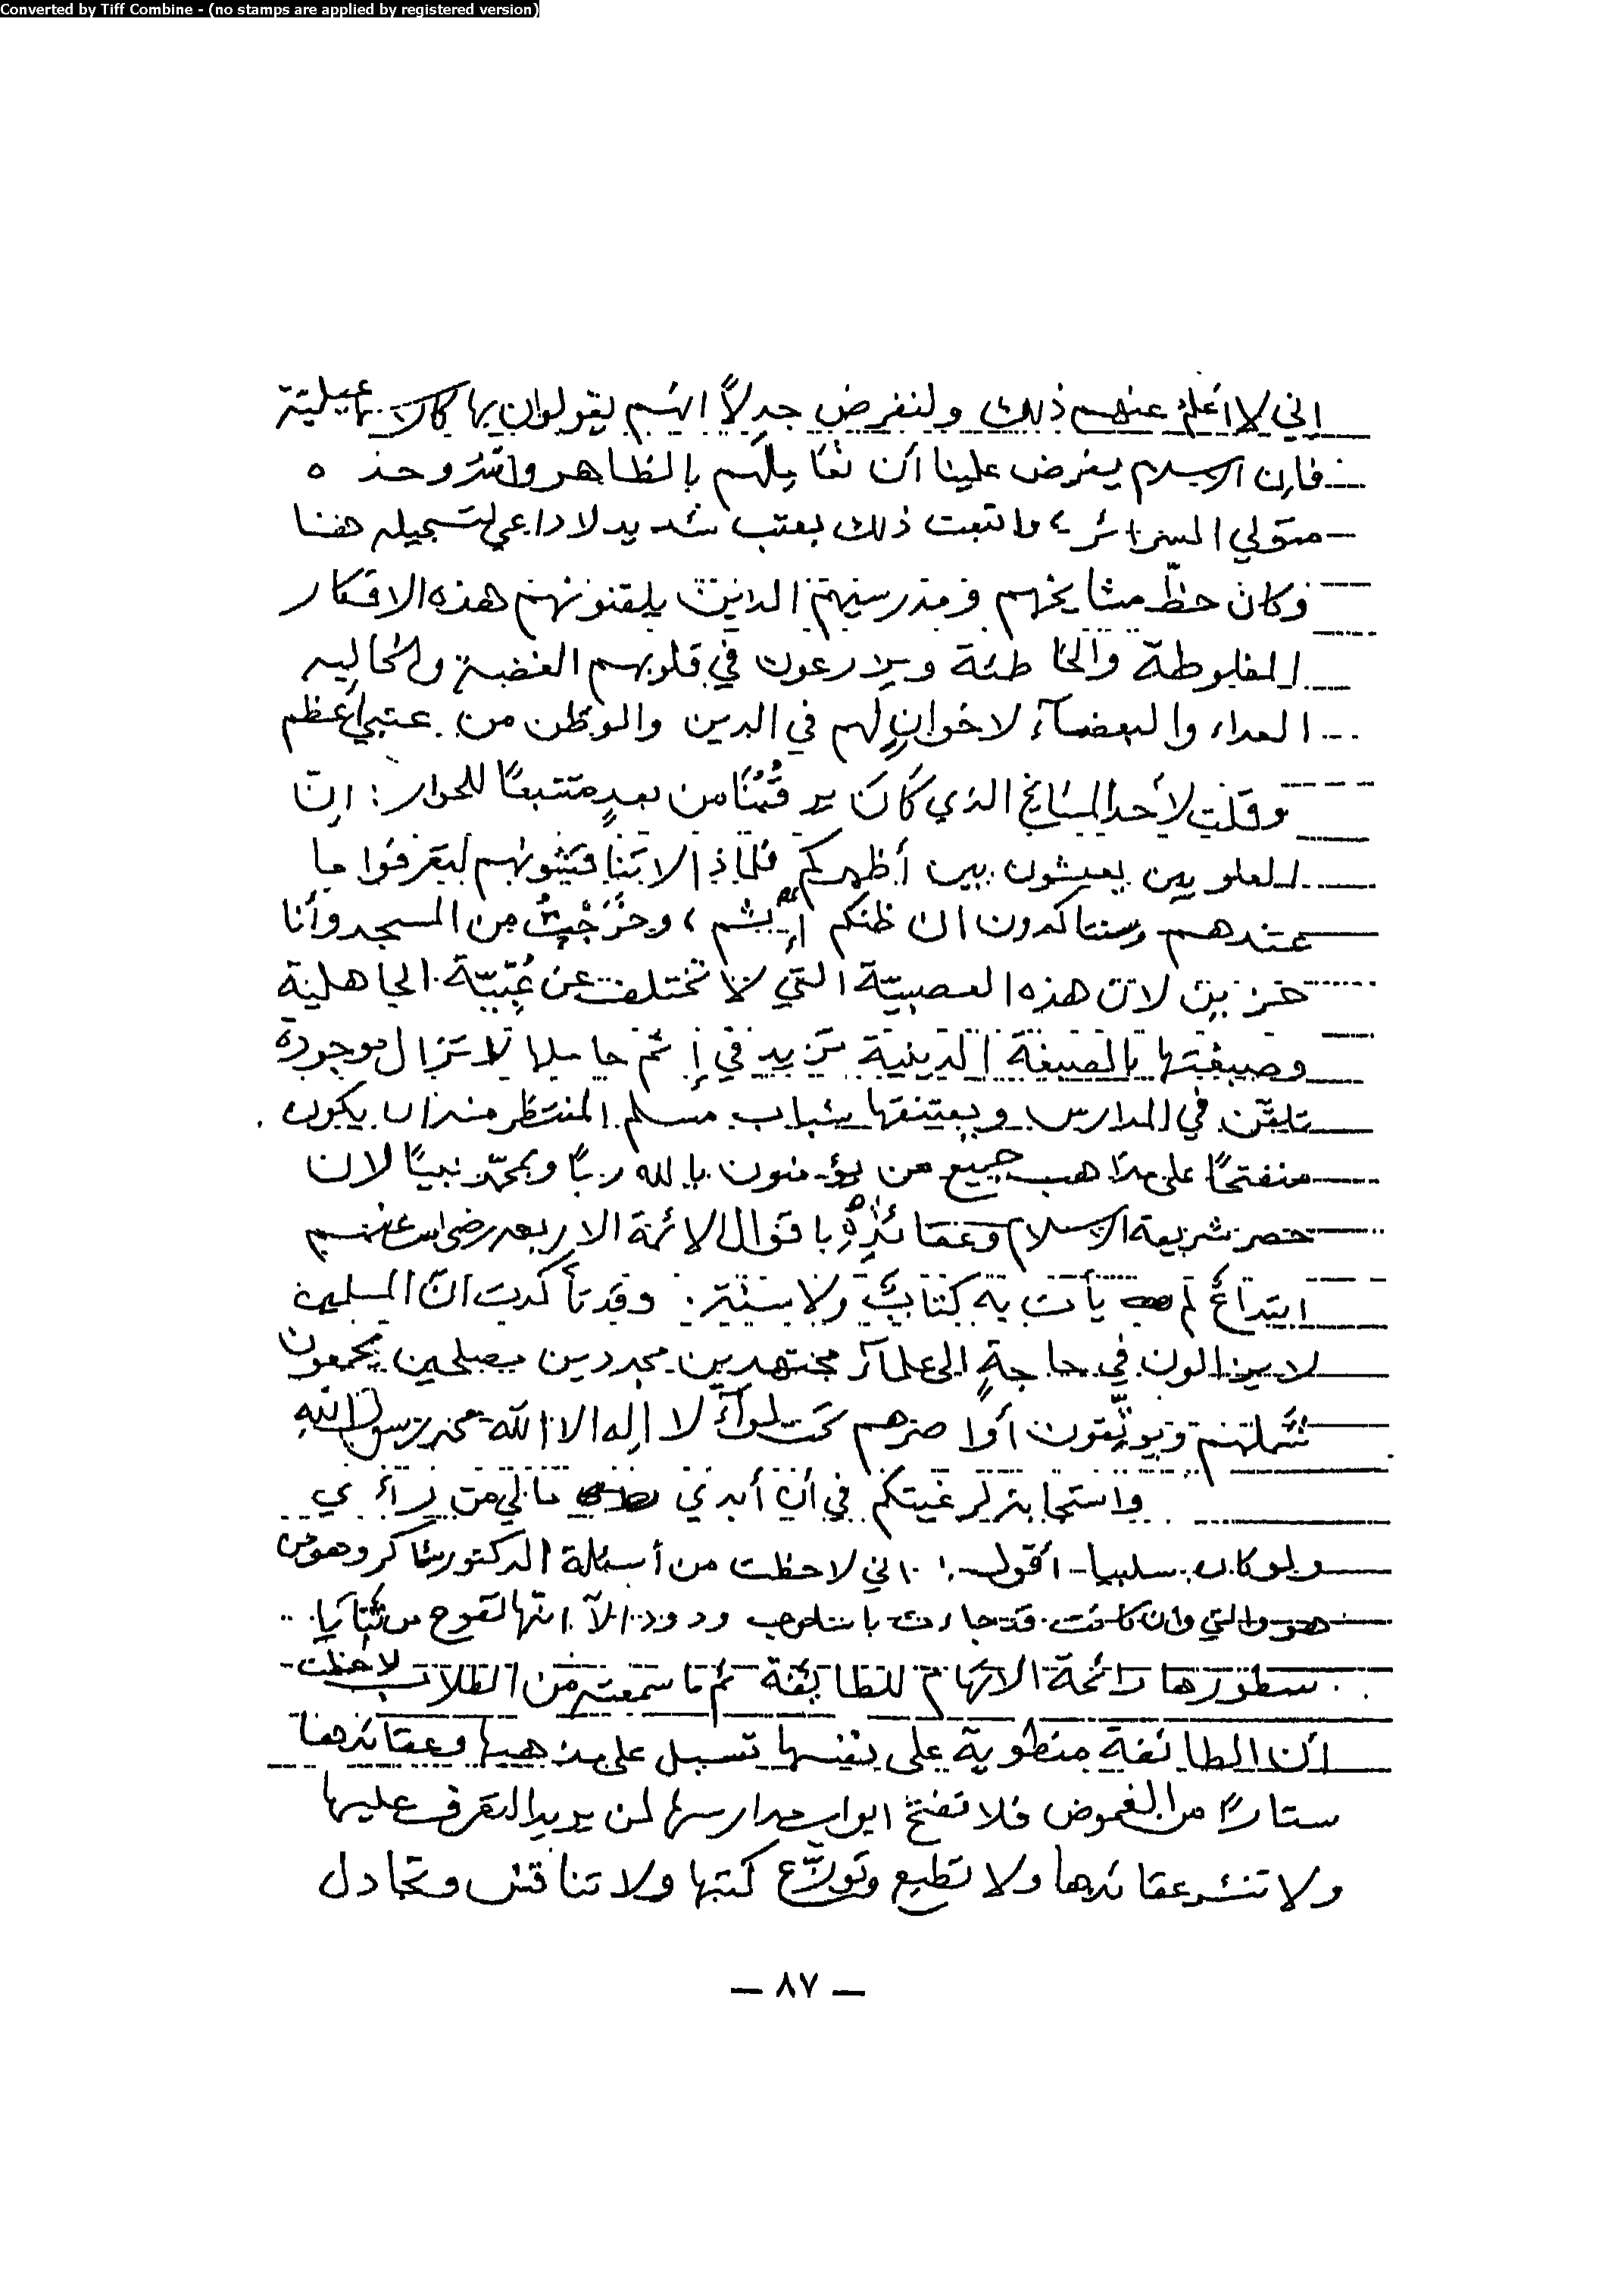 Converted by Tiff Combine - (no stamps are applied by registered version)
اني لا اعلم عنهم ذلك ولنفرض جدلاً انهم يقولون بها كالاسماعيلية
فإن الاسلام يفرض علينا أن نعاملهم بالظاهر والله وحده
متولي السرائر، واتبعت ذلك بعتب شديد لا داعي لتسجيله هنا
وكان حظّ مشايخهم ومدرسيهم الذين يلقنونهم هذه الافكار
المغلوطة والخاطئة ويزرعون في قلوبهم الغضبة والجالبة
العداء والبغضآء لاخوانٍ لهم في الدين والوطن من عتبي أعظم
وقلت لأحد المشايخ الذي كان يرقُبُنا من بعدٍ متتبعاً للحوار: إنّ
العلويين يعيشون بين أظهركم فلماذا لا تناقشونهم لتعرفوا ما
عندهم وستتأكدون ان ظنكم إثم، وخرَجْتُ من المسجد وأنا
حزين لان هذه العصبيّة التي لا تختلف عن عُبِّيّة الجاهلية
وصبغتها بالصبغة الدينية تزيد في إثم حاملها لا تزال موجودة
تلقّن في المدارس ويعتنقها شباب مسلم المنتظر منه ان يكون
منفتحاً على مذاهب جميع من يؤمنون بالله رباً وبمحمّد نبياً لان
حصر شريعة الاسلام وعقائدِهِ باقوال الائمة الاربعه رضي الله عنهم
ابتداعٌ لم يأت به كتابٌ ولا سنة. وقد تأكدت انّ المسلمين
لا يزالون في حاجةٍ الى علمآء مجتهدين مجددين مصلحين يجمعون
شملهم ويوثّقون أواصرهم تحت لوآء لا إله الا الله محمد رسول الله
واستجابة لرغبتكم في أن أبدي ما لي من رأي
ولو كان سلبيا- أقول: اني لاحظت من أسئلة الدكتور شاكر وهو من
هو والتي وان كانت قد جاءت باسلوب ودود الآ انها تفوح من ثنايا
سطورها رائحة الاتهام للطائفة ثم ما سمعته من الطلاب لاحظت
أن الطائفة منطوية على نفسها تسبل على مذهبها وعقائدها
ستاراً من الغموض فلا تفتح ابواب مدارسها لمن يريد التعرف عليها
ولا تنشر عقائدها ولا تطبع وتوزّع كتبها ولا تناقش وتجادل
— ٨٧ —